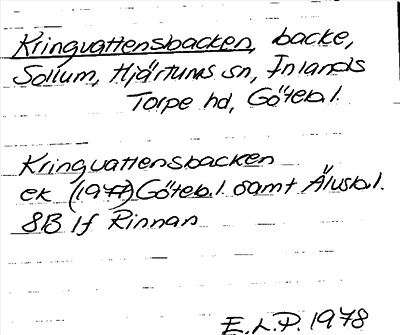 Kringvattensbacken, backe,
Sollum, Hjärtums sn, Inlands
Torpe hd, Göteb. l.
Kringvattensbacken
ek (1977) Göteb. l. samt Älvsb. l.
8B 1f Rinnan
E.L.P. 1978